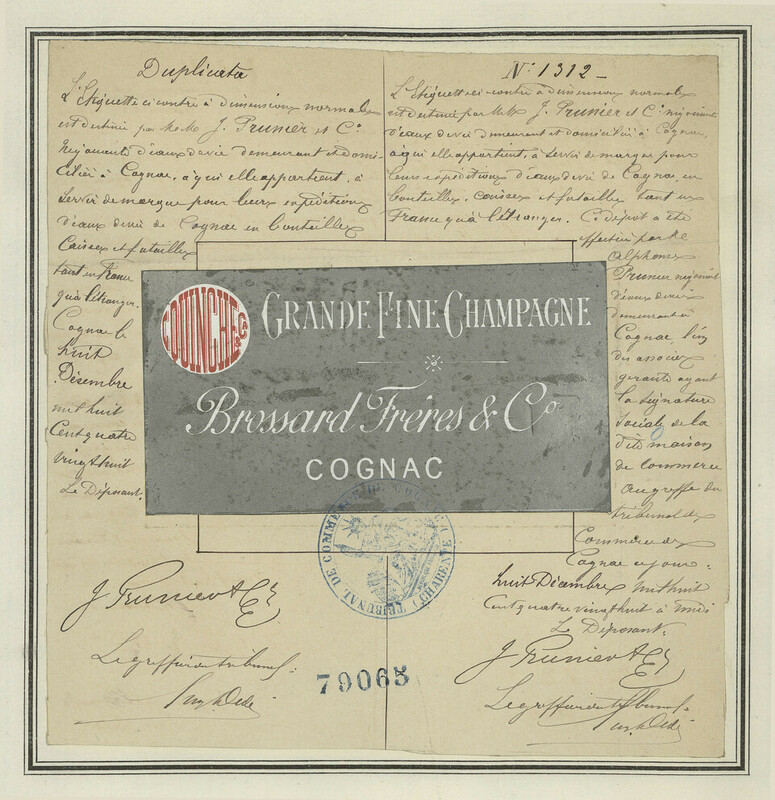 Duplicata
L'Etiquette ci contre à dimensions normales
est destinée par MM. J. Prunier et Cie
Négociants d'eaux de vie demeurant et domi-
ciliés à Cognac, à qui elle appartient, à
servir de marque pour leurs expéditions
d'eaux de vie de Cognac en bouteilles
Caisses et futailles
tant en France
qu'à l'étranger.
Cognac le
huit
Décembre
mil huit
Cent quatre
vingt huit
Le Déposant.
J. Prunier & Cie
Le greffier du tribunal.
No. 1312 -
L'Etiquette ci contre à dimensions normales
est destinée par MM. J. Prunier et Cie négociants
d'eaux de vie demeurant et domiciliés à Cognac,
à qui elle appartient, à servir de marque pour
leurs expéditions d'eaux de vie de Cognac, en
bouteilles, caisses et futailles tant en
France qu'à l'étranger. Ce dépôt a été
effectué par M.
Alphonse
Prunier négociant
d'eaux de vie
demeurant à
Cognac l'un
des associés
gérants ayant
la signature
sociale de la
dite maison
de commerce
au greffe du
tribunal de
Commerce de
Cognac ce jour
huit Décembre mil huit
Cent quatre vingt huit à midi
Le Déposant.
J. Prunier & Cie
Le greffier du tribunal
COUINCHE & CAS
GRANDE FINE CHAMPAGNE
Brossard Frères & Co
COGNAC
TRIBUNAL DE COMMERCE DE COGNAC (CHARENTE)
79065